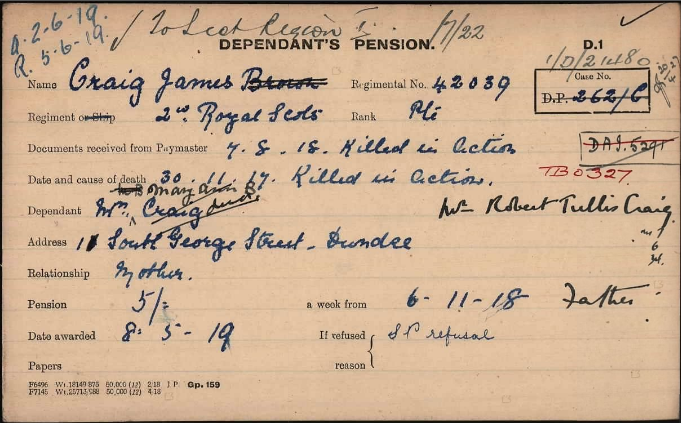 A. 2-6-19.
R. 5-6-19.
✓ To Scot Region 1/7/22
DEPENDANT'S PENSION.
D.1
1/D/21480
Name Craig James Brown Regimental No. 42039
Case No.
D.P. 262/C
Regiment or Ship 2nd Royal Scots Rank Pte
Documents received from Paymaster 7.8.18. Killed in Action
D.A.J. 5291
Date and cause of death 30.11.17. Killed in Action.
TB0327
Mary Ann B
Dependant Mrs Craig
Mr Robert Tullis Craig
Address 11 South George Street - Dundee
Relationship Mother.
Pension 5/- a week from 6-11-18 Father
Date awarded 8-5-19 If refused reason S.P. refusal
Papers
F6496 Wt.18149/875 60,000 (12) 2/18 J.P. Gp. 159
F7145 Wt.25713/988 60,000 (12) 4/18